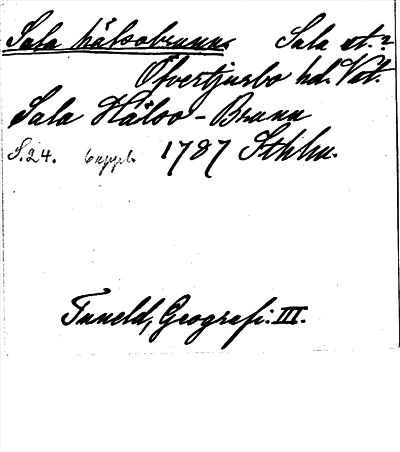 Sala hälsobrunn. Sala st.?
Övertjurbo hd. Vstl.
Sala Hälso-Brunn
S. 24. 6 uppl. 1787 Sthlm.
Tuneld, Geografi. III.